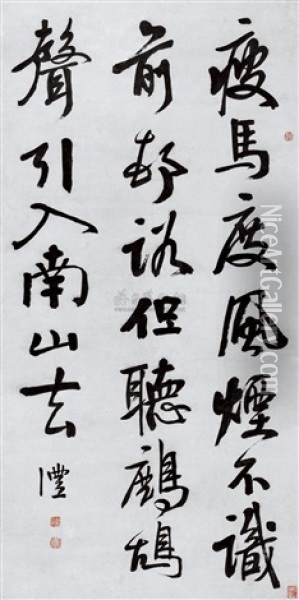 瘦馬度風煙不識
前邨路但聽鷓鴣
聲引入南山去
灃
NiceArtGallery.com